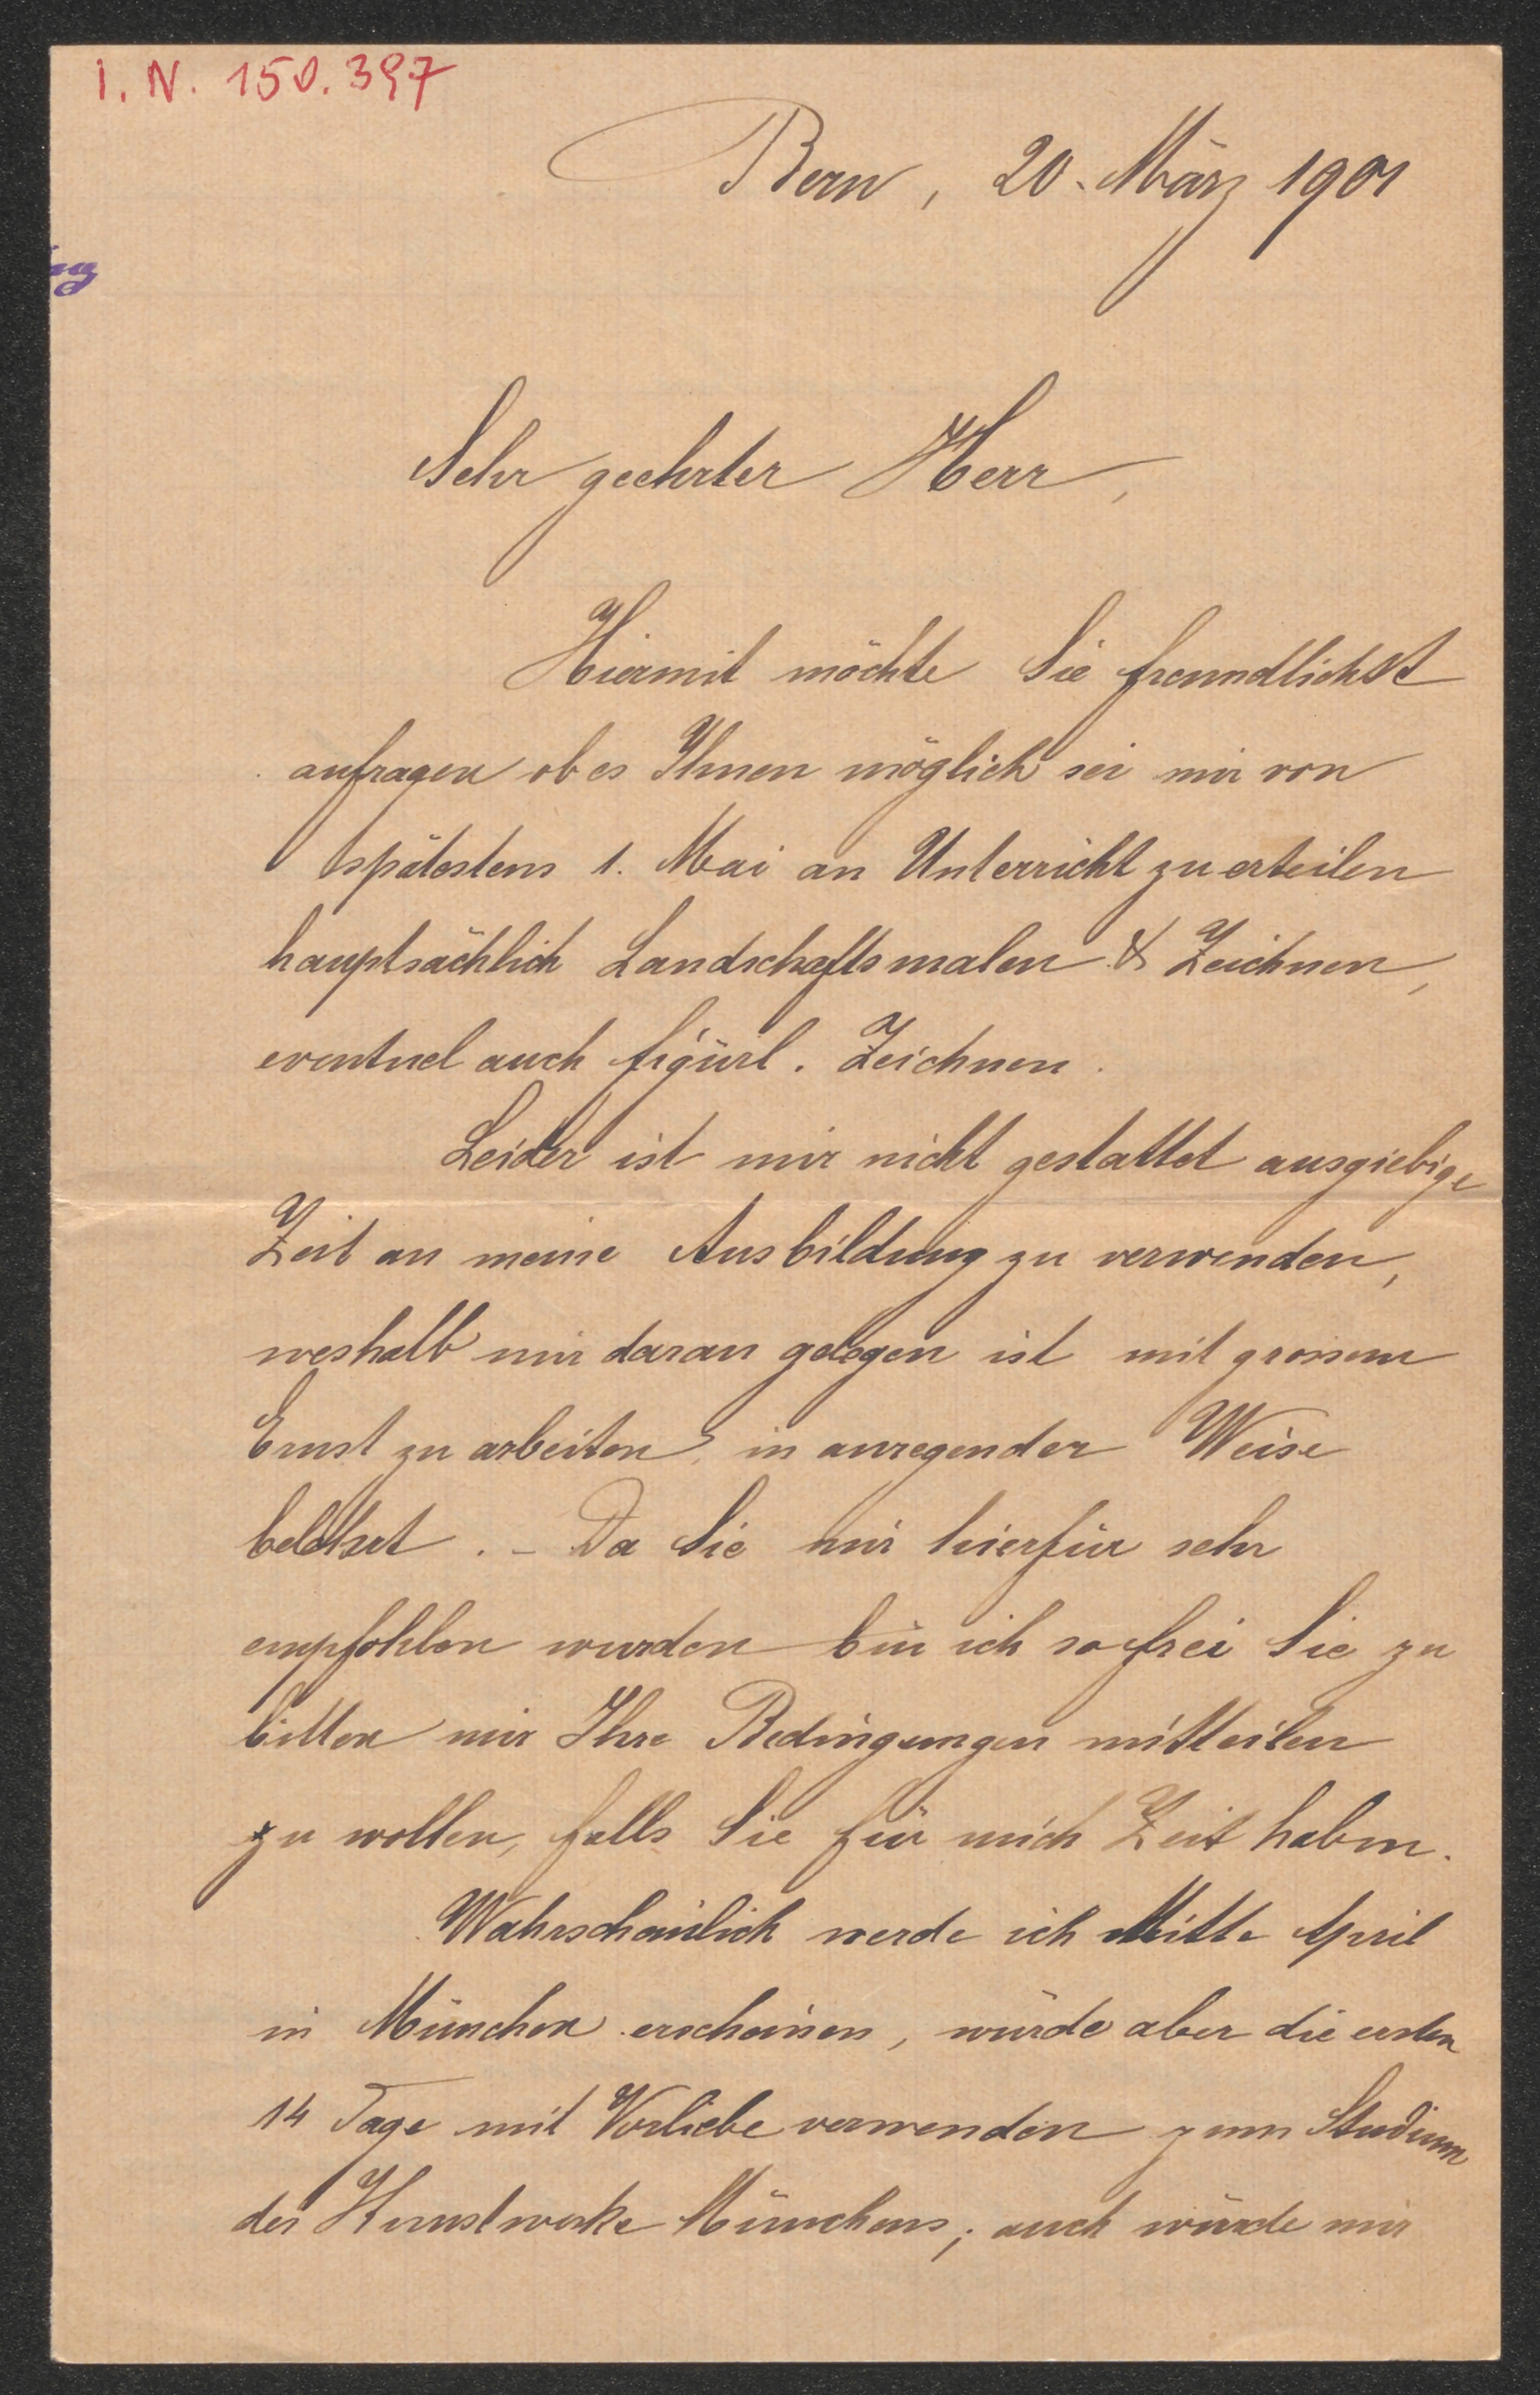 I. N. 150.397
Bern, 20. März 1901
ng
Sehr geehrter Herr,
Hiermit möchte Sie freundlichst
anfragen ob es Ihnen möglich sei mir von
spätestens 1. Mai an Unterricht zu erteilen
hauptsächlich Landschaftsmalen & Zeichnen,
eventuel auch figürl. Zeichnen.
Leider ist mir nicht gestattet ausgiebige
Zeit an meine Ausbildung zu verwenden,
weshalb mir daran gelegen ist mit grossem
Ernst zu arbeiten, in anregender Weise
belehrt. – Da Sie mir hierfür sehr
empfohlen wurden bin ich so frei Sie zu
bitten mir Ihre Bedingungen mitteilen
zu wollen, falls Sie für mich Zeit haben.
Wahrscheinlich werde ich Mitte April
in München erscheinen, würde aber die ersten
14 Tage mit Vorliebe verwenden zum Studium
der Kunstwerke Münchens; auch würde mir